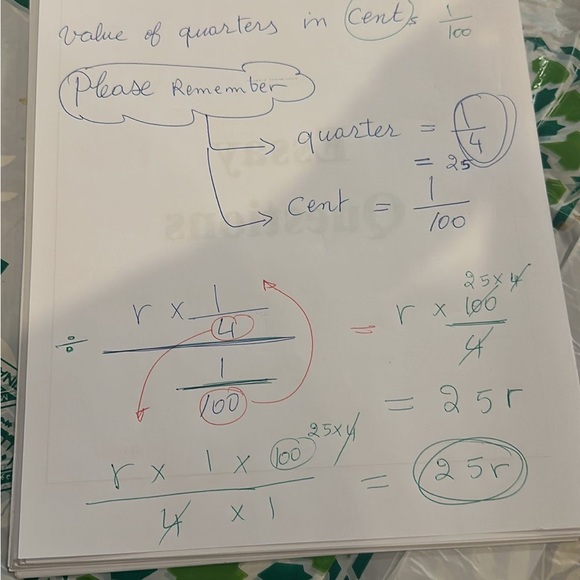 value of quarters in cents 1/100
Please Remember
quarter = 1/4
= 25
cent = 1/100
÷ (r × 1/4) / (1/100) = r × 100/4
25 × 4
= 25r
(r × 1 × 100) / (4 × 1) = 25r
25 × 4